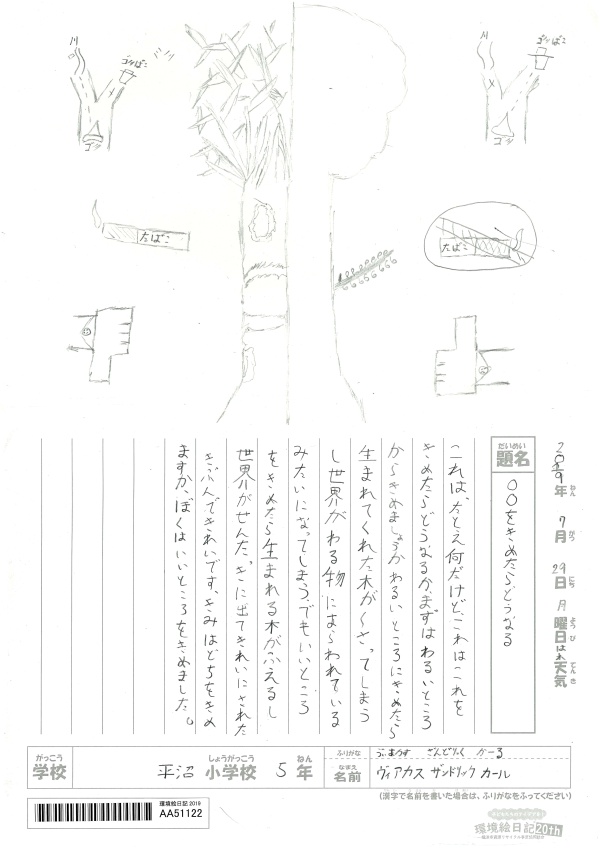 川
ゴッばこ
ゴッ
たばこ
川
ゴッばこ
ゴッ
たばこ
2019年 7月 29日 月曜日 はれ 天気
ねん がつ にち ようび てんき
だいめい
題名
○○をきめたらどうなる
これは、たとえ何だけど、これはこれを
きめたらどうなるか、まずはわるいところ
からきめましょうか わるいところにきめたら
生まれてくれた木がくさってしまう
し世界がわる物にあらわれている
みたいになってしまう、でもいいところ
をきめたら生まれる木がふえるし
世界がぜんた、きに出てきれいにされた
きぶんできれいです。きみはどちをきめ
ますか、ぼくはいいところをきめました。
がっこう
学校
平沼
しょうがっこう
小学校
5
ねん
年
ふりがな
なまえ
名前
ヴィアカス ザンドリック カール
(漢字で名前を書いた場合は、ふりがなをふってください)
環境絵日記2019
AA51122
環境絵日記20th